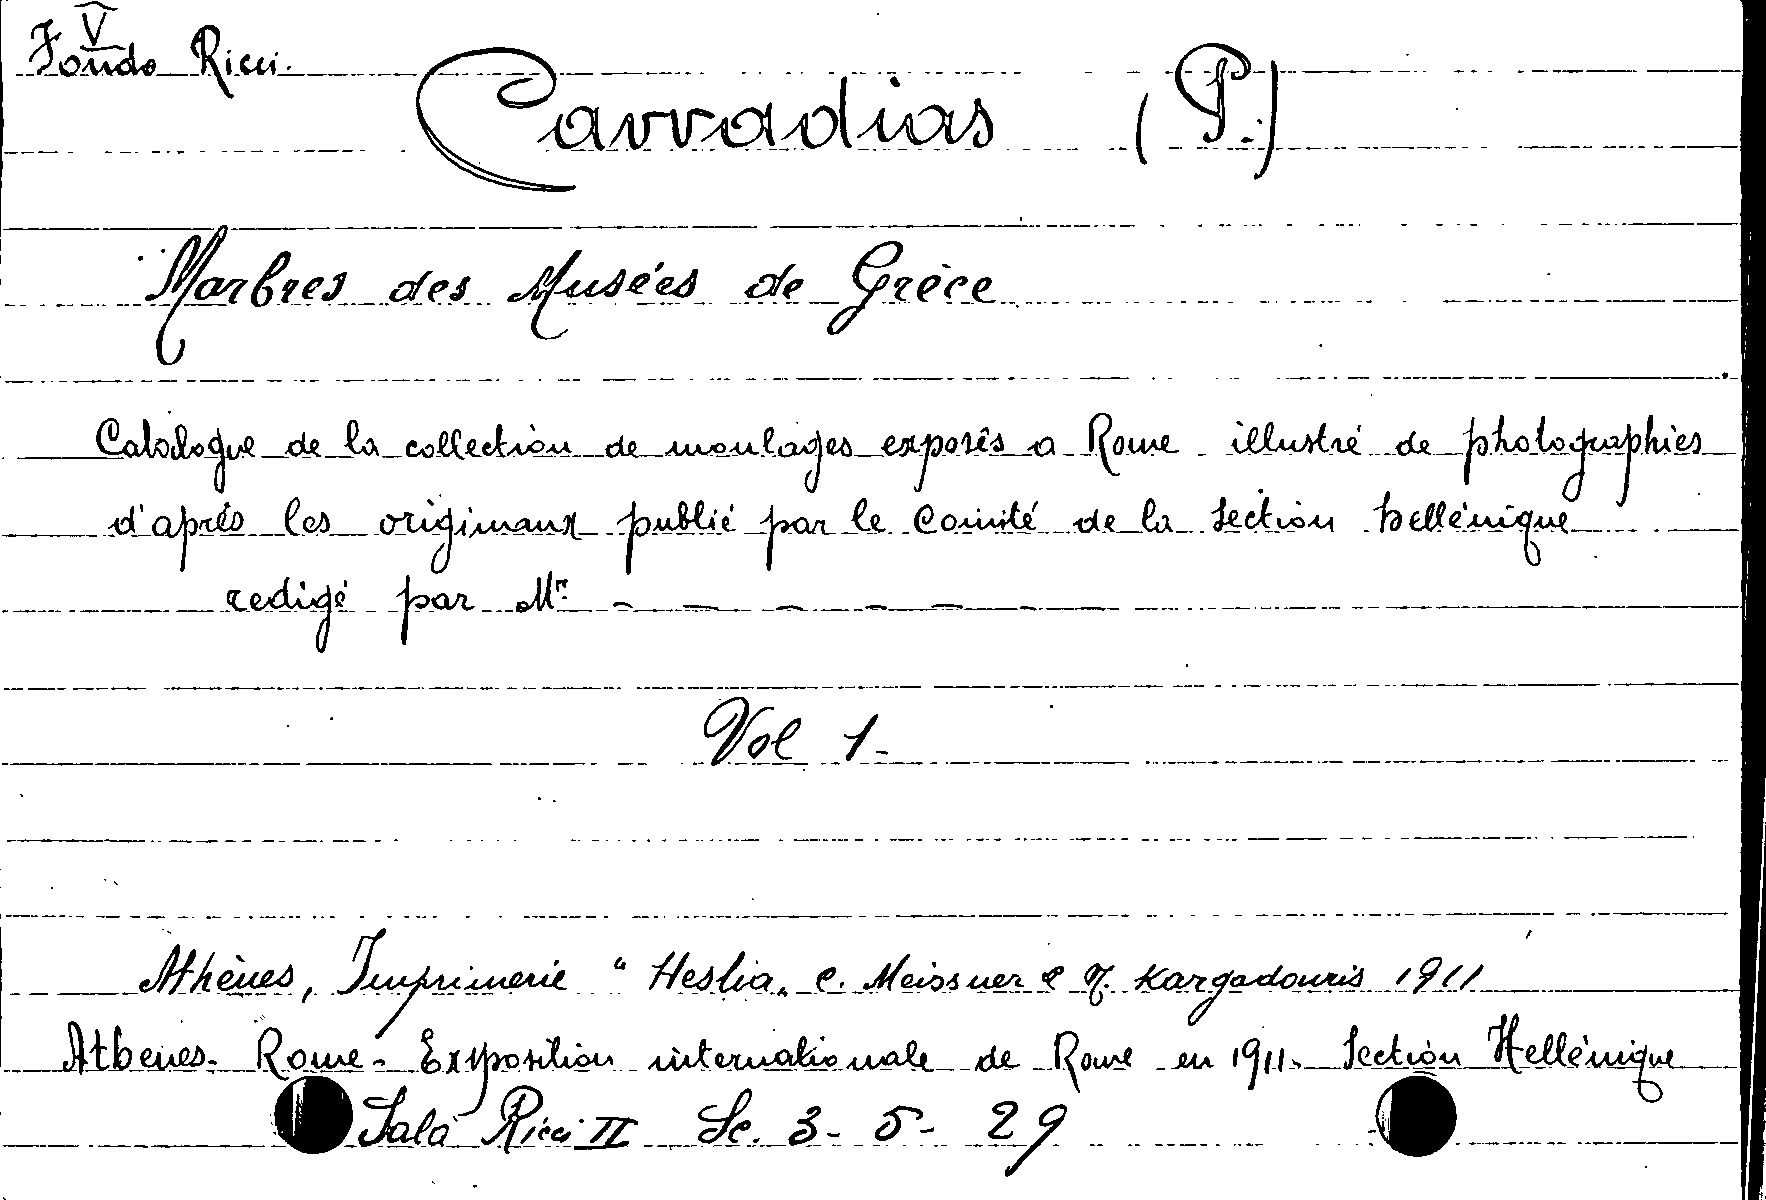 V
Fondo Ricci.
Cavvadias (P.)
Marbres des Musées de Grèce
Catalogue de la collection de moulages exposés a Rome illustré de photographies
d'après les originaux publié par le Comité de la Section hellénique
redigé par Mr. - - - - -
Vol 1-
Athènes, Imprimerie "Hestia" C. Meissner & N. Kargadouris 1911
Athenes- Rome- Exposition internationale de Rome en 1911. Section Hellénique
Sala Ricci II Sc. 3- 5- 29